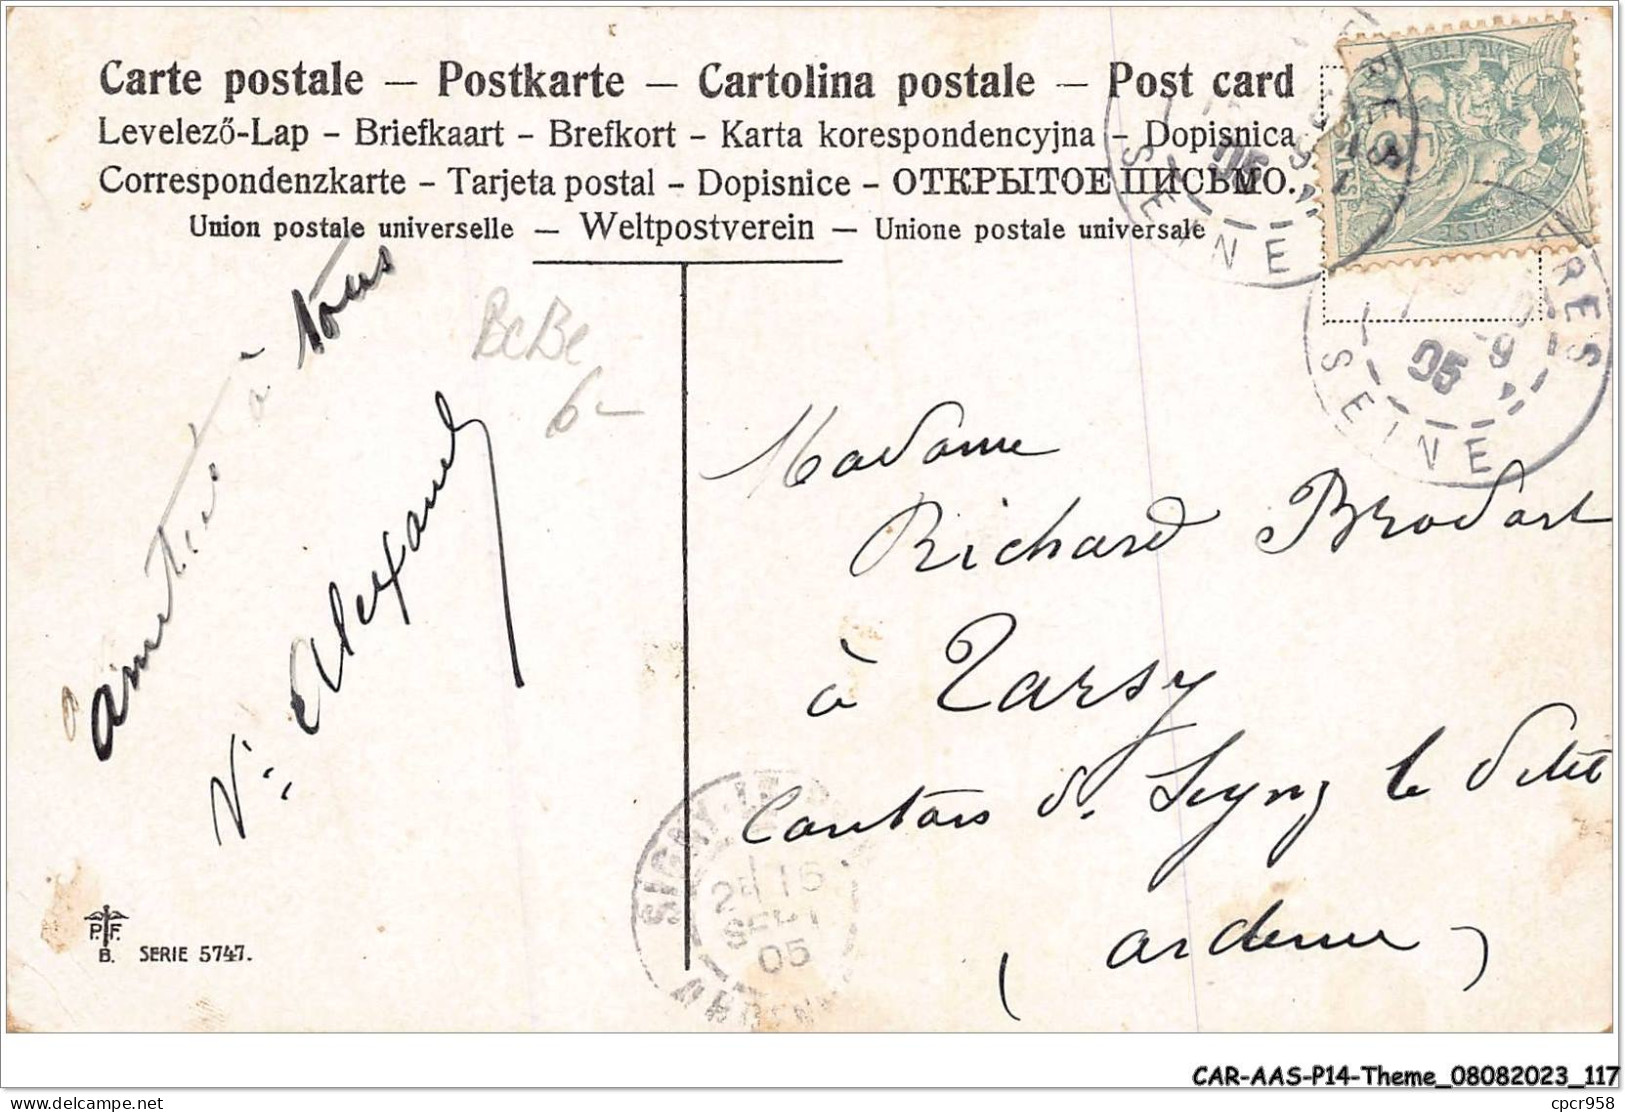 Carte postale — Postkarte — Cartolina postale — Post card
Levelező-Lap - Briefkaart - Brefkort - Karta korespondencyjna - Dopisnica
Correspondenzkarte - Tarjeta postal - Dopisnice - ОТКРЫТОЕ ПИСЬМО.
Union postale universelle — Weltpostverein — Unione postale universale
amitiés à tous
Alexandre
BeBe
6-
SEINE
05
SEINE
05
Madame
Richard Brodart
à Tarsy
Canton d. Signy le Petit
(ardenne)
SIGNY-LE
16
SEPT
05
P. F.
B. SERIE 5747.
CAR-AAS-P14-Theme_08082023_117
delcampe.net
cpcr958